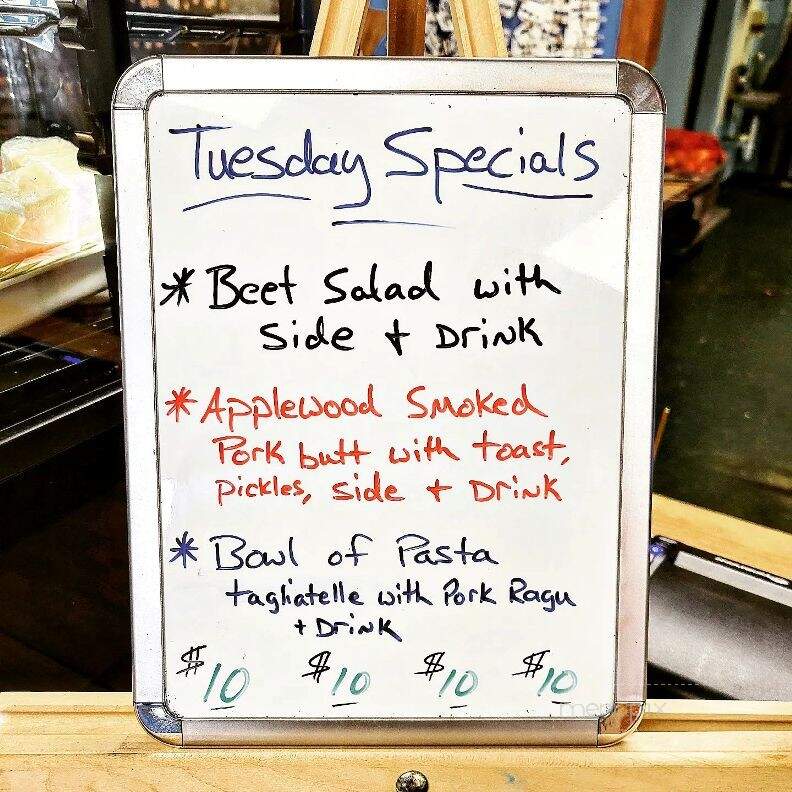 Tuesday Specials
* Beet Salad with
Side + Drink
* Applewood Smoked
Pork butt with toast,
pickles, side + Drink
* Bowl of Pasta
tagliatelle with Pork Ragu
+ Drink
$10 $10 $10 $10
menupix